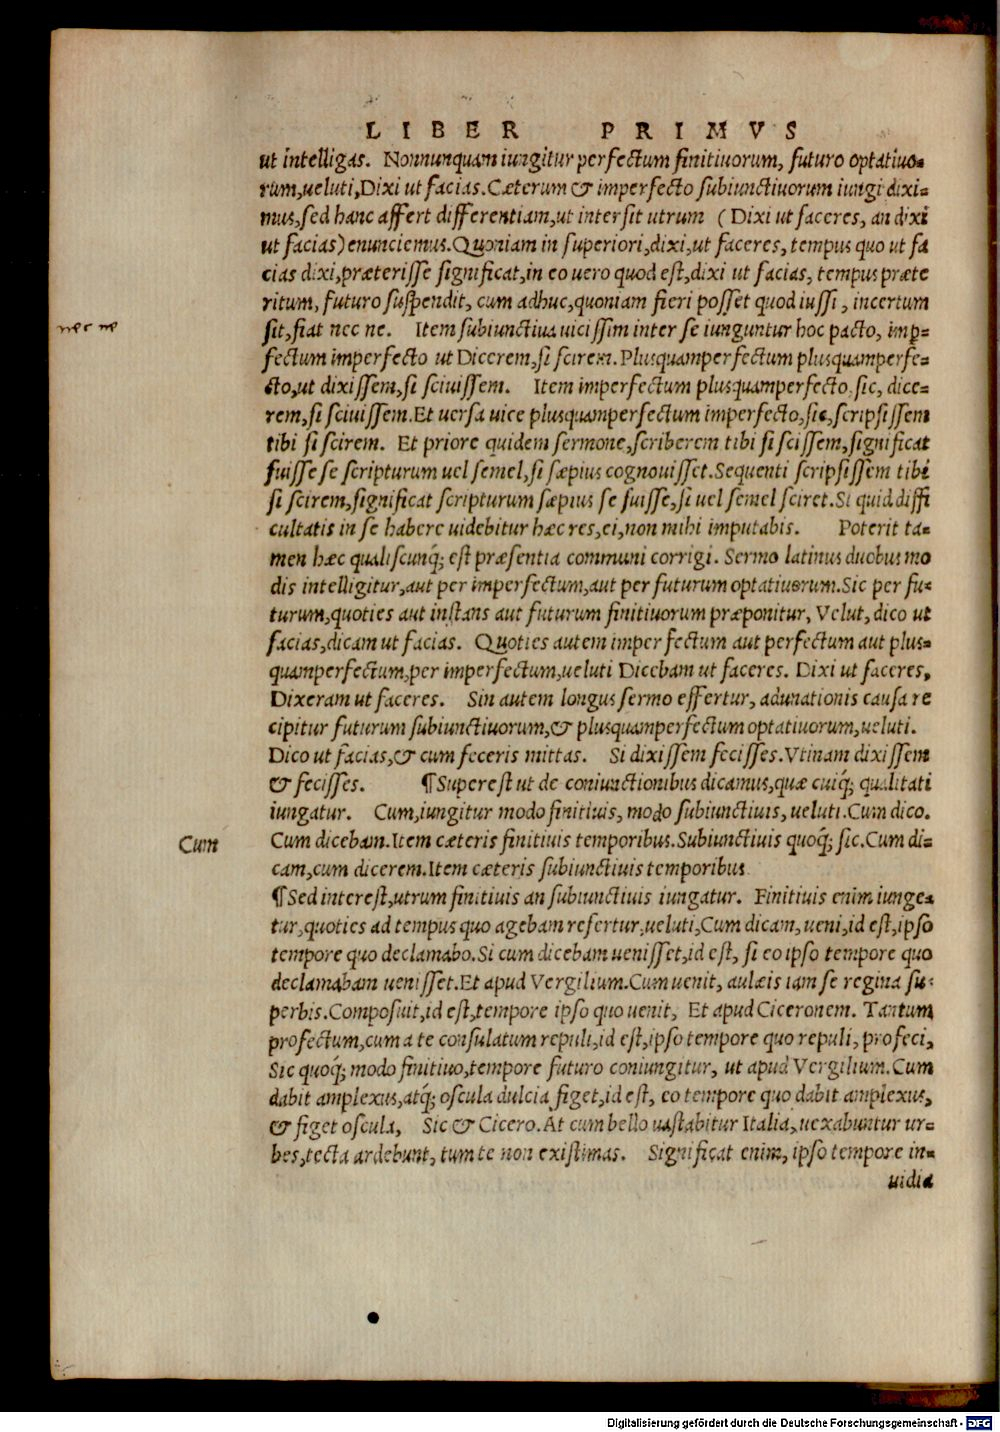 LIBER PRIMVS
ut intelligas. Nonnunquam iungitur perfectum finitiuorum, futuro optatiuo-
rum,ueluti,Dixi ut facias.Cæterum & imperfecto subiunctiuorum iungi dixi-
mus,sed hanc affert differentiam,ut intersit utrum (Dixi ut faceres, an dixi
ut facias)enunciemus.Quoniam in superiori,dixi,ut faceres, tempus quo ut fa
cias dixi,præterisse significat,in eo uero quod est,dixi ut facias, tempus præte
ritum, futuro suspendit, cum adhuc,quoniam fieri posset quod iussi, incertum
nec ne
sit,fiat nec ne. Item subiunctiua uicissim inter se iunguntur hoc pacto, imp̱=
fectum imperfecto ut Dicerem,si scirem.Plusquamperfectum plusquamperfe=
cto,ut dixissem,si sciuissem. Item imperfectum plusquamperfecto.sic, dice=
rem,si sciuissem.Et uersa uice plusquamperfectum imperfecto,sic,scripsissem
tibi si scirem. Et priore quidem sermone,scriberem tibi si scissem,significat
fuisse se scripturum uel semel,si sæpius cognouisset.Sequenti scripsissem tibi
si scirem,significat scripturum sæpius se fuisse,si uel semel sciret.Si quid diffi
cultatis in se habere uidebitur hæc res,ei,non mihi imputabis. Poterit ta=
men hæc qualiscunq; est præsentia communi corrigi. Sermo latinus duobus mo
dis intelligitur,aut per imperfectum,aut per futurum optatiuorum.Sic per fu-
turum,quoties aut instans aut futurum finitiuorum præponitur, Velut, dico ut
facias,dicam ut facias. Quoties autem imperfectum aut perfectum aut plus=
quamperfectum,per imperfectum,ueluti Dicebam ut faceres. Dixi ut faceres,
Dixeram ut faceres. Sin autem longus sermo effertur, adunationis causa re
cipitur futurum subiunctiuorum,& plusquamperfectum optatiuorum,ueluti.
Dico ut facias,& cum feceris mittas. Si dixissem fecisses.Vtinam dixissem
& fecisses. ¶Superest ut de coniunctionibus dicamus,quæ cuiq; qualitati
iungatur. Cum,iungitur modo finitiuis, modo subiunctiuis, ueluti.Cum dico.
Cum
Cum dicebam.Item cæteris finitiuis temporibus.Subiunctiuis quoq; sic.Cum di=
cam,cum dicerem.Item cæteris subiunctiuis temporibus.
¶Sed interest,utrum finitiuis an subiunctiuis iungatur. Finitiuis enim iunge=
tur,quoties ad tempus quo agebam refertur,ueluti,Cum dicam, ueni,id est,ipso
tempore quo declamabo.Si cum dicebam uenisset,id est, si eo ipso tempore quo
declamabam uenisset.Et apud Vergilium.Cum uenit, aulæis iam se regina su-
perbis.Composuit,id est,tempore ipso quo uenit, Et apud Ciceronem. Tantum
profectum,cum a te consulatum repuli,id est,ipso tempore quo repuli, profeci,
Sic quoq; modo finitiuo,tempore futuro coniungitur, ut apud Vergilium.Cum
dabit amplexus,atq; oscula dulcia figet,id est, eo tempore quo dabit amplexus,
& figet oscula, Sic & Cicero.At cum bello uastabitur Italia,uexabuntur ur=
bes,tecta ardebunt, tum te non existimas. Significat enim, ipso tempore in=
uidia
Digitalisierung gefördert durch die Deutsche Forschungsgemeinschaft - DFG